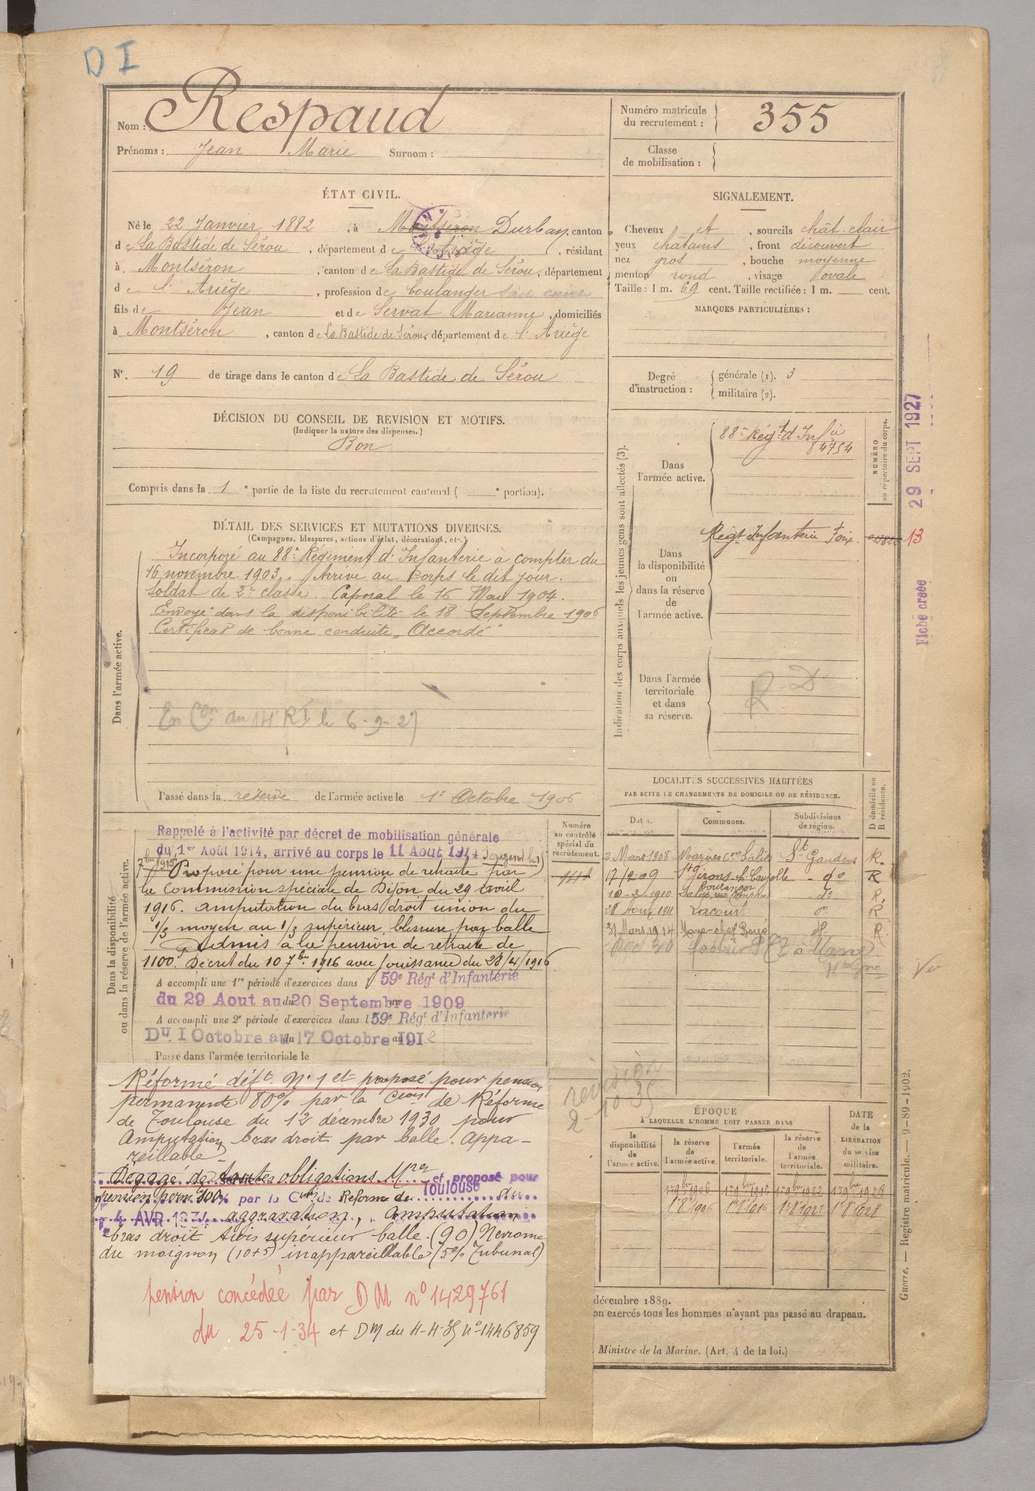 D I
Nom : Respaud
Prénoms : Jean Marie Surnom :
Numéro matricule du recrutement : 355
Classe de mobilisation :
ÉTAT CIVIL.
Né le 22 Janvier 1882, à Durban, canton
de La Bastide de Sérou, département de l'Ariège, résidant
à Montséron, canton de La Bastide de Sérou, département
de l'Ariège, profession de boulanger
fils de Jean et de Servat Marianne, domiciliés
à Montséron, canton de La Bastide de Sérou, département de l'Ariège
N°. 19 de tirage dans le canton de La Bastide de Sérou
DÉCISION DU CONSEIL DE REVISION ET MOTIFS.
(Indiquer la nature des dispenses.)
Bon
Compris dans la 1e partie de la liste du recrutement cantonal ( e portion).
SIGNALEMENT.
Cheveux et, sourcils chât. clair
yeux châtains, front découvert
nez gros, bouche moyenne
menton rond, visage ovale
Taille : 1 m. 69 cent. Taille rectifiée : 1 m. cent.
MARQUES PARTICULIÈRES :
Degré d'instruction : générale (1). 3
militaire (2).
DÉTAIL DES SERVICES ET MUTATIONS DIVERSES.
(Campagnes, blessures, actions d'éclat, décorations, etc.)
Dans l'armée active.
Incorporé au 88e Régiment d'Infanterie à compter du
16 novembre 1903. Arrivé au corps le dit jour.
Soldat de 2e classe. Caporal le 16 Mars 1904.
Envoyé dans la disponibilité le 18 Septembre 1906
Certificat de bonne conduite "Accordé"
En Con au 14e RI le 6-9-27
Passé dans la réserve de l'armée active le 1er Octobre 1906
Indication des corps auxquels les jeunes gens sont affectés (3).
Dans l'armée active.
88e Régt d'Infie
NUMÉRO au répertoire du corps.
Dans la disponibilité ou dans la réserve de l'armée active.
Régt Infanterie Foix 13
Dans l'armée territoriale et dans sa réserve.
R D
Fiche créée 29 SEPT 1927
Dans la disponibilité ou dans la réserve de l'armée active.
Numéro au contrôle spécial du recrutement.
Rappelé à l'activité par décret de mobilisation générale
du 1er Août 1914, arrivé au corps le 11 Aout 1914
Proposé pour une pension de retraite par
la Commission spéciale de Dijon du 29 avril
1916. amputation du bras droit union du
1/3 moyen au 1/3 supérieur, blessure par balle
Admis à la pension de retraite de
1100. Décret du 10 7bre 1916 avec jouissance du 28/4/1916
A accompli une 1re période d'exercices dans l 59e Régt d'Infanterie
du 29 Aout au 20 Septembre 1909
A accompli une 2e période d'exercices dans l 59e Régt d'Infanterie
Du 1 Octobre au 17 Octobre 1912
Passé dans l'armée territoriale le
Réformé déft N° 1 et proposé pour pension
permanente 80% par la Cion de Réforme
de Toulouse du 12 décembre 1930 pour
Amputation bras droit par balle. appa-
reillable
Dégagé de toutes obligations Mres et proposé pour
pension perm 100% par la Con de Réforme de Toulouse du
4 AVR 1934 aggravation, amputation
bras droit tiers supérieur balle (90) Nevrome
du moignon (10+5) inappareillable (5% Tribunal)
pension concédée par DM n° 1429761
du 25-1-34 et DM du 11-4-35 n° 1446859
revision
2-10-35
LOCALITÉS SUCCESSIVES HABITÉES
PAR SUITE DE CHANGEMENTS DE DOMICILE OU DE RÉSIDENCE.
Dates. Communes. Subdivisions de région. D domicile ou R résidence.
2 Mars 1908 St Gaudens R.
17/2 09 St Girons do R
10-2-1910 do R,
1911 Lacourt do R
31 Mars 1914 R.
Vu
ÉPOQUE
À LAQUELLE L'HOMME DOIT PASSER DANS
la disponibilité de l'armée active. la réserve de l'armée active. l'armée territoriale. la réserve de l'armée territoriale.
DATE de la LIBÉRATION du service militaire.
1er 8bre 1906
décembre 1889.
on exercés tous les hommes n'ayant pas passé au drapeau.
Ministre de la Marine. (Art. 4 de la loi.)
Guerre. — Registre matricule. — 9-89-1902.